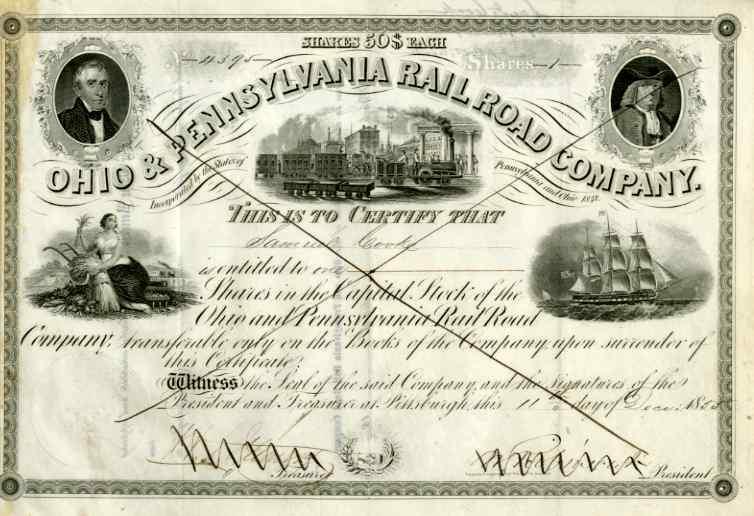 SHARES 50$ EACH
No 4595
Shares 1
OHIO & PENNSYLVANIA RAIL ROAD COMPANY.
Incorporated by the States of Pennsylvania and Ohio 1848.
THIS IS TO CERTIFY THAT
Samuel Cooke
is entitled to one
Shares in the Capital Stock of the
Ohio and Pennsylvania Rail Road
Company, transferable only on the Books of the Company upon surrender of
this Certificate;
Witness the Seal of the said Company, and the Signatures of the
President and Treasurer at Pittsburgh, this 11th day of Decr. 185
Treasurer
President